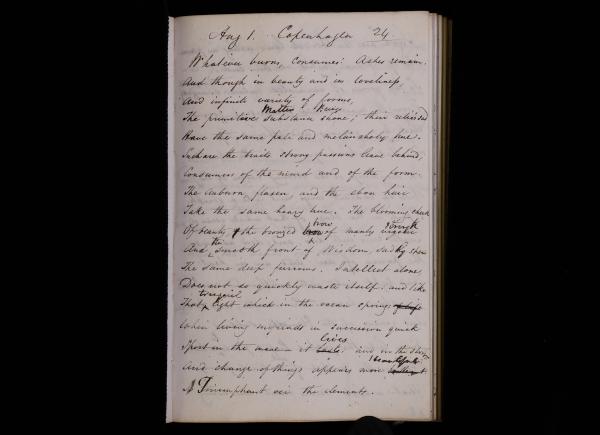 Aug 1. Copenhagen 24.
Whatever burns, consumes: Ashes remain.
And though in beauty and in loveliness,
And infinite variety of forms,
Matter &
The primitive substance shone; their relics
Have the same pale and melancholy hue.
Such are the traits strong passions leave behind,
Consumers of the mind and of the form.
The auburn, flaxen, and the ebon hair
Take the same hoary hue. The blooming cheek
brow strength
Of beauty & the bronzed brow of manly vigour
the
And smooth front of Wisdom, sadly shew
The same deep furrows. Intellect alone
Does not so quickly waste itself and like
tranquil
That light which in the ocean springs of life
When living myriads in succession quick
lives
Sport in the wave – it lasts: and in the
And change of things appears more
Triumphant oer the elements.